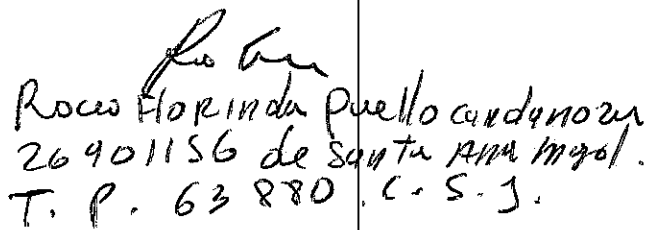 Rocio Florinda Puello candanoza
26901156 de Santa Ana Mgal.
T. P. 63880. C. S. J.